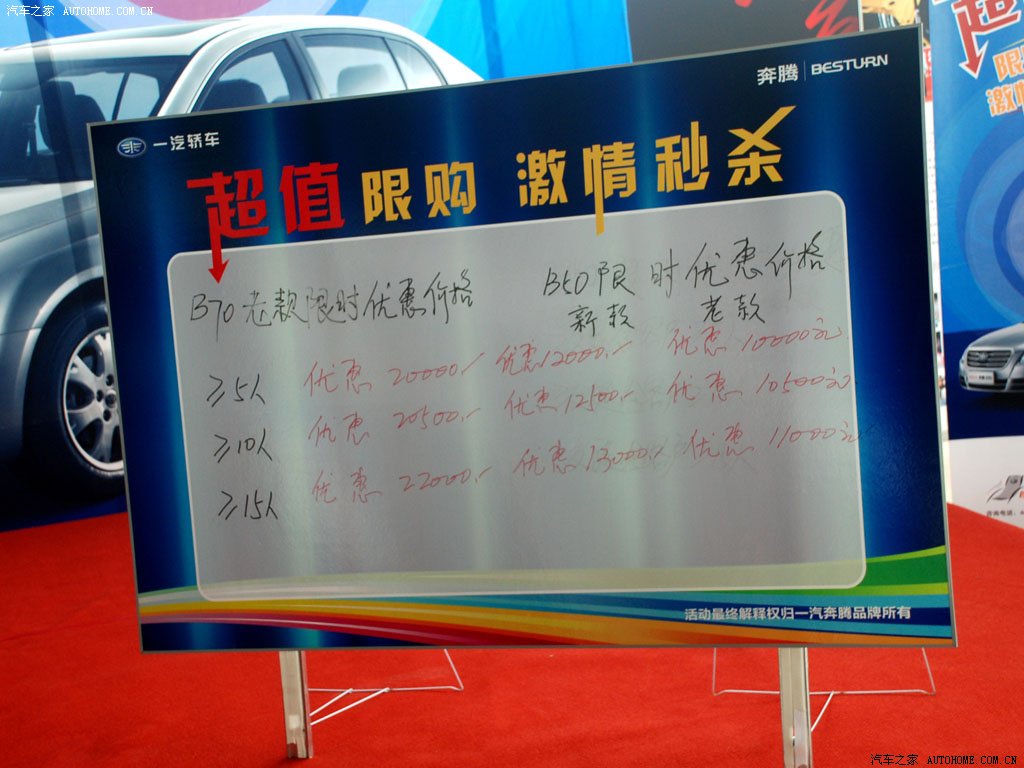 汽车之家 AUTOHOME.COM.CN
奔腾 | BESTURN
一汽轿车
超值限购 激情秒杀
B70老款限时优惠价格 B50限时优惠价格
新款 老款
≥5人 优惠20000.- 优惠12000.- 优惠10000元
≥10人 优惠20500.- 优惠12500.- 优惠10500元
≥15人 优惠22000.- 优惠13000.- 优惠11000元
活动最终解释权归一汽奔腾品牌所有
超
限
激情
咨询电话:
汽车之家 AUTOHOME.COM.CN